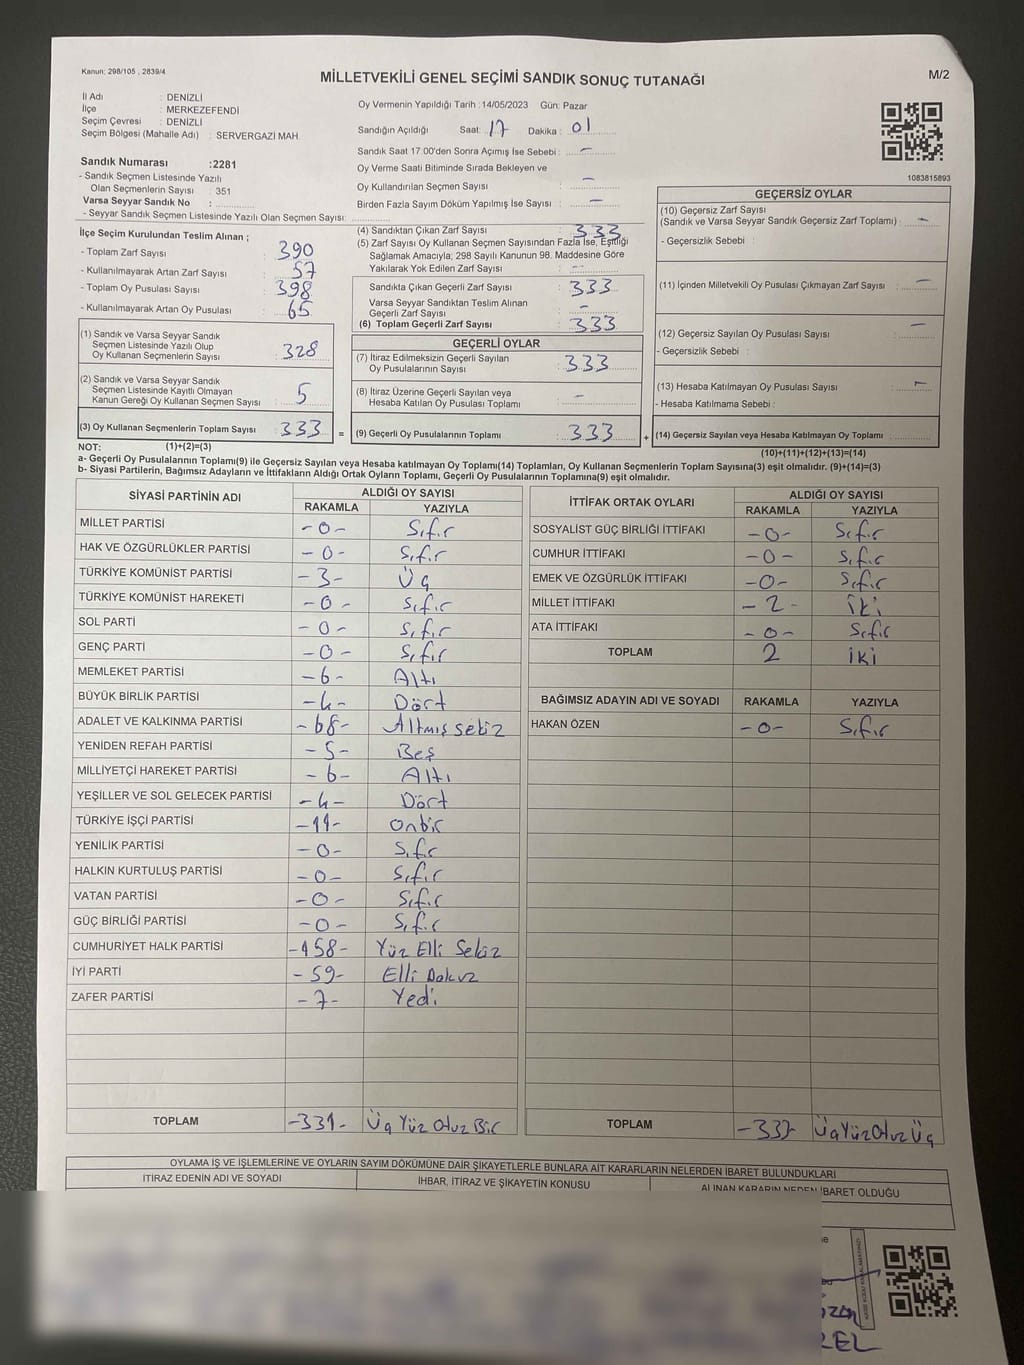 Kanun: 298/105 , 2839/4
MİLLETVEKİLİ GENEL SEÇİMİ SANDIK SONUÇ TUTANAĞI
M/2
İl Adı : DENİZLİ
İlçe : MERKEZEFENDİ
Seçim Çevresi : DENİZLİ
Seçim Bölgesi (Mahalle Adı) : SERVERGAZİ MAH.
Oy Vermenin Yapıldığı Tarih :14/05/2023 Gün: Pazar
Sandığın Açıldığı Saat: 17 Dakika : 01
Sandık Saat 17:00'den Sonra Açımış İse Sebebi : -
Oy Verme Saati Bitiminde Sırada Bekleyen ve
Oy Kullandırılan Seçmen Sayısı -
Birden Fazla Sayım Döküm Yapılmış İse Sayısı -
1083815893
Sandık Numarası :2281
- Sandık Seçmen Listesinde Yazılı
Olan Seçmenlerin Sayısı : 351
Varsa Seyyar Sandık No :
- Seyyar Sandık Seçmen Listesinde Yazılı Olan Seçmen Sayısı:
İlçe Seçim Kurulundan Teslim Alınan ;
- Toplam Zarf Sayısı : 390
- Kullanılmayarak Artan Zarf Sayısı : 57
- Toplam Oy Pusulası Sayısı : 398
- Kullanılmayarak Artan Oy Pusulası : 65
(1) Sandık ve Varsa Seyyar Sandık
Seçmen Listesinde Yazılı Olup
Oy Kullanan Seçmenlerin Sayısı : 328
(2) Sandık ve Varsa Seyyar Sandık
Seçmen Listesinde Kayıtlı Olmayan
Kanun Gereği Oy Kullanan Seçmen Sayısı : 5
(3) Oy Kullanan Seçmenlerin Toplam Sayısı : 333
(4) Sandıktan Çıkan Zarf Sayısı : 333
(5) Zarf Sayısı Oy Kullanan Seçmen Sayısından Fazla İse, Eşitliği
Sağlamak Amacıyla; 298 Sayılı Kanunun 98. Maddesine Göre
Yakılarak Yok Edilen Zarf Sayısı : -
Sandıkta Çıkan Geçerli Zarf Sayısı : 333
Varsa Seyyar Sandıktan Teslim Alınan
Geçerli Zarf Sayısı : -
(6) Toplam Geçerli Zarf Sayısı : 333
GEÇERLİ OYLAR
(7) İtiraz Edilmeksizin Geçerli Sayılan
Oy Pusulalarının Sayısı : 333
(8) İtiraz Üzerine Geçerli Sayılan veya
Hesaba Katılan Oy Pusulası Toplamı : -
= (9) Geçerli Oy Pusulalarının Toplamı : 333
GEÇERSİZ OYLAR
(10) Geçersiz Zarf Sayısı
(Sandık ve Varsa Seyyar Sandık Geçersiz Zarf Toplamı) : -
- Geçersizlik Sebebi :
(11) İçinden Milletvekili Oy Pusulası Çıkmayan Zarf Sayısı : -
(12) Geçersiz Sayılan Oy Pusulası Sayısı : -
- Geçersizlik Sebebi :
(13) Hesaba Katılmayan Oy Pusulası Sayısı : -
- Hesaba Katılmama Sebebi :
+ (14) Geçersiz Sayılan veya Hesaba Katılmayan Oy Toplamı :
NOT: (1)+(2)=(3)
(10)+(11)+(12)+(13)=(14)
a- Geçerli Oy Pusulalarının Toplamı(9) ile Geçersiz Sayılan veya Hesaba katılmayan Oy Toplamı(14) Toplamları, Oy Kullanan Seçmenlerin Toplam Sayısına(3) eşit olmalıdır. (9)+(14)=(3)
b- Siyasi Partilerin, Bağımsız Adayların ve İttifakların Aldığı Ortak Oyların Toplamı, Geçerli Oy Pusulalarının Toplamına(9) eşit olmalıdır.
SİYASİ PARTİNİN ADI ALDIĞI OY SAYISI
RAKAMLA YAZIYLA
MİLLET PARTİSİ -0- Sıfır
HAK VE ÖZGÜRLÜKLER PARTİSİ -0- Sıfır
TÜRKİYE KOMÜNİST PARTİSİ -3- Üç
TÜRKİYE KOMÜNİST HAREKETİ -0- Sıfır
SOL PARTİ -0- Sıfır
GENÇ PARTİ -0- Sıfır
MEMLEKET PARTİSİ -6- Altı
BÜYÜK BİRLİK PARTİSİ -4- Dört
ADALET VE KALKINMA PARTİSİ -68- Altmış sekiz
YENİDEN REFAH PARTİSİ -5- Beş
MİLLİYETÇİ HAREKET PARTİSİ -6- Altı
YEŞİLLER VE SOL GELECEK PARTİSİ -4- Dört
TÜRKİYE İŞÇİ PARTİSİ -11- Onbir
YENİLİK PARTİSİ -0- Sıfr
HALKIN KURTULUŞ PARTİSİ -0- Sıfır
VATAN PARTİSİ -0- Sıfır
GÜÇ BİRLİĞİ PARTİSİ -0- Sıfır
CUMHURİYET HALK PARTİSİ -158- Yüz Elli Sekiz
İYİ PARTİ -59- Elli Dokuz
ZAFER PARTİSİ -7- Yedi
TOPLAM -331- Üç Yüz Otuz Bir
İTTİFAK ORTAK OYLARI ALDIĞI OY SAYISI
RAKAMLA YAZIYLA
SOSYALİST GÜÇ BİRLİĞİ İTTİFAKI -0- Sıfır
CUMHUR İTTİFAKI -0- Sıfır
EMEK VE ÖZGÜRLÜK İTTİFAKI -0- Sıfır
MİLLET İTTİFAKI -2- İki
ATA İTTİFAKI -0- Sıfır
TOPLAM 2 İki
BAĞIMSIZ ADAYIN ADI VE SOYADI RAKAMLA YAZIYLA
HAKAN ÖZEN -0- Sıfır
TOPLAM -333- Üç Yüz Otuz Üç
OYLAMA İŞ VE İŞLEMLERİNE VE OYLARIN SAYIM DÖKÜMÜNE DAİR ŞİKAYETLERLE BUNLARA AİT KARARLARIN NELERDEN İBARET BULUNDUKLARI
İTİRAZ EDENİN ADI VE SOYADI İHBAR, İTİRAZ VE ŞİKAYETİN KONUSU ALINAN KARARIN NEDEN İBARET OLDUĞU